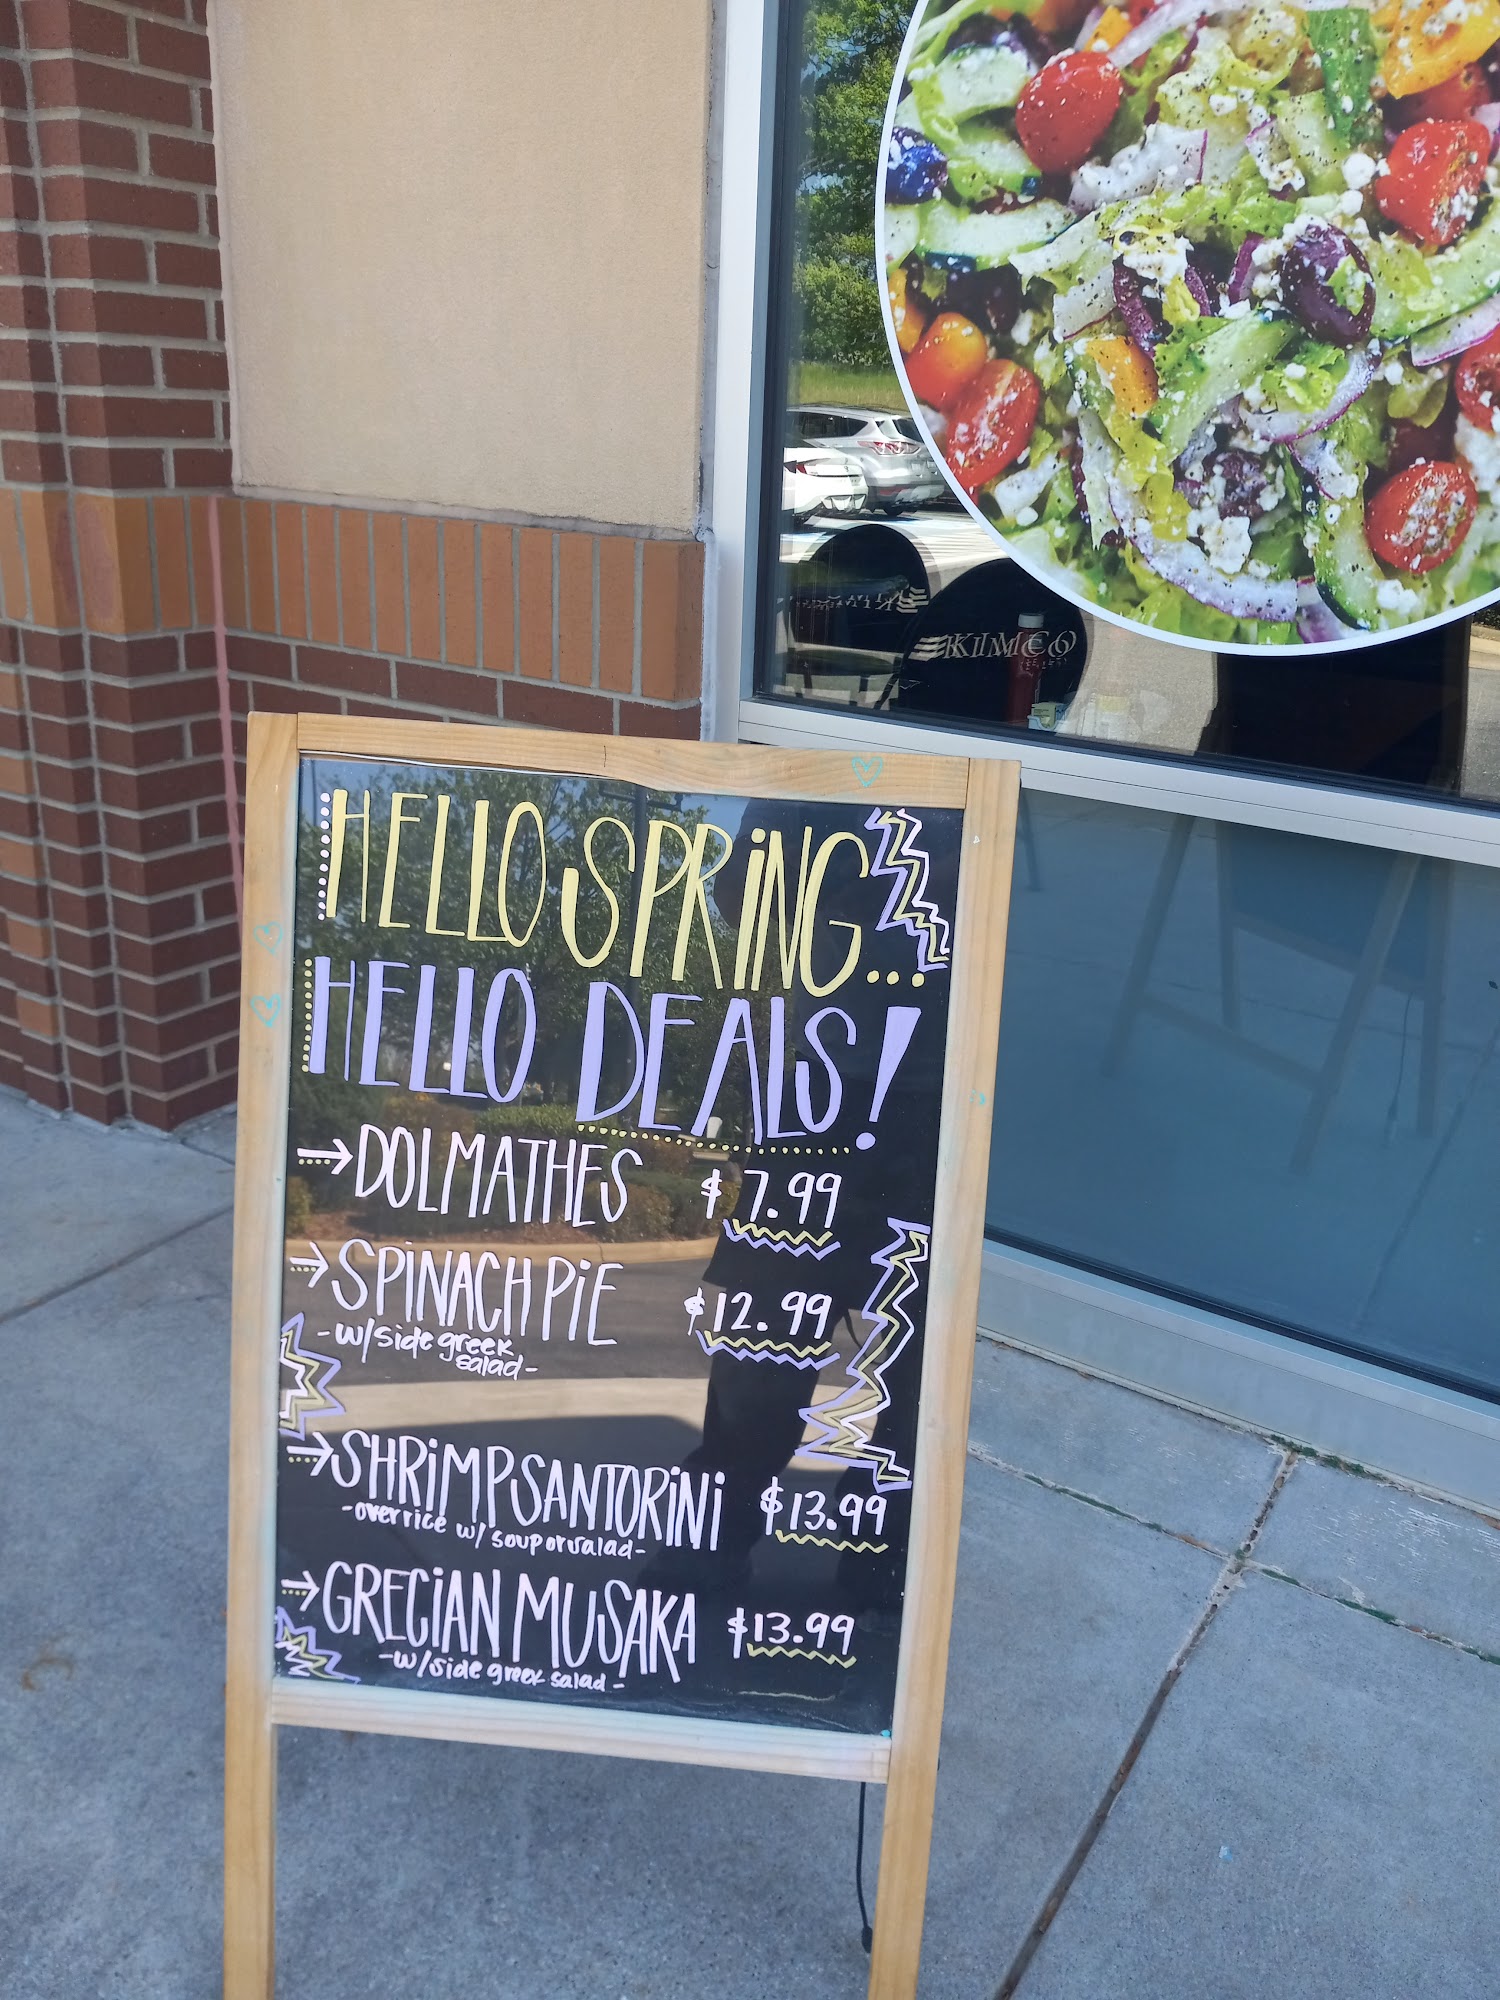 KIMCO
HELLO SPRING...
HELLO DEALS!
→ DOLMATHES $7.99
→ SPINACH PIE $12.99
-w/side greek
salad-
→ SHRIMP SANTORINI $13.99
-over rice w/ soup or salad-
→ GRECIAN MUSAKA $13.99
-w/side greek salad-